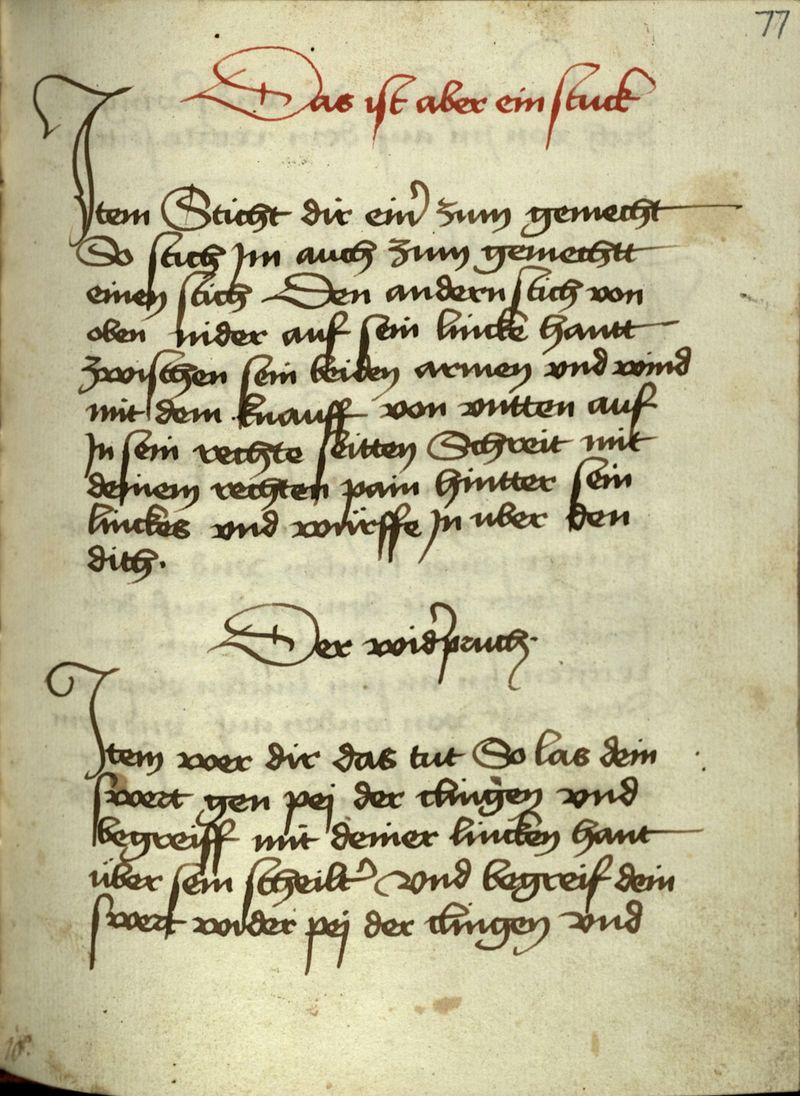 77
Das ist aber ein stuck
Item Sticht dir ein̾ zum gemecht
So stich Im auch zum gemechtt
einen stich Den andern stich von
oben nider auf sein lincke hantt
zwischen sein beiden armen vnd wind
mit dem knauff von vntten auf
In sein rechte seitten Schreit mit
deinem rechten pain hintter sein
linckes vnd würffe In uber den
dich.
Der wid̾pruch.
Item wer dir das tut So las dein
swert gen pej der clingen vnd
begreiff mit deiner lincken hant
über sein scheilt̾ vnd begreif dein
swert wider pej der clingen vnd